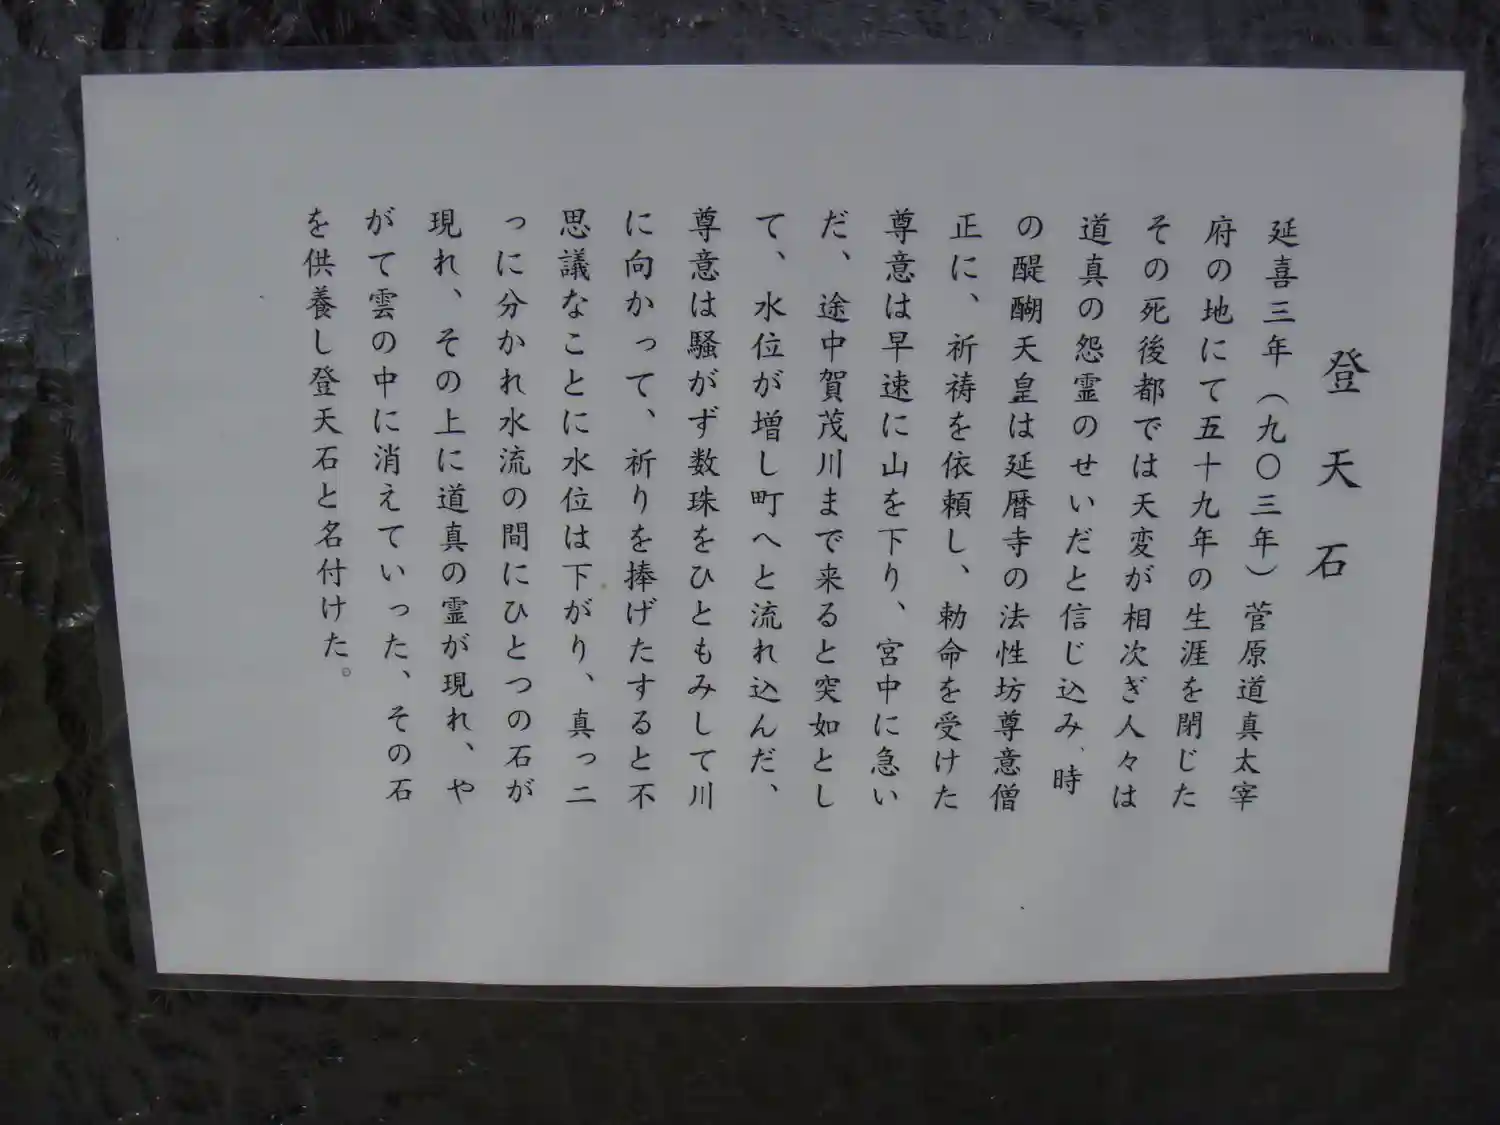 登天石
延喜三年（九〇三年）菅原道真太宰
府の地にて五十九年の生涯を閉じた
その死後都では天変が相次ぎ人々は
道真の怨霊のせいだと信じ込み、時
の醍醐天皇は延暦寺の法性坊尊意僧
正に、祈祷を依頼し、勅命を受けた
尊意は早速に山を下り、宮中に急い
だ、途中賀茂川まで来ると突如とし
て、水位が増し町へと流れ込んだ、
尊意は騒がず数珠をひともみして川
に向かって、祈りを捧げたすると不
思議なことに水位は下がり、真っ二
っに分かれ水流の間にひとつの石が
現れ、その上に道真の霊が現れ、や
がて雲の中に消えていった、その石
を供養し登天石と名付けた。